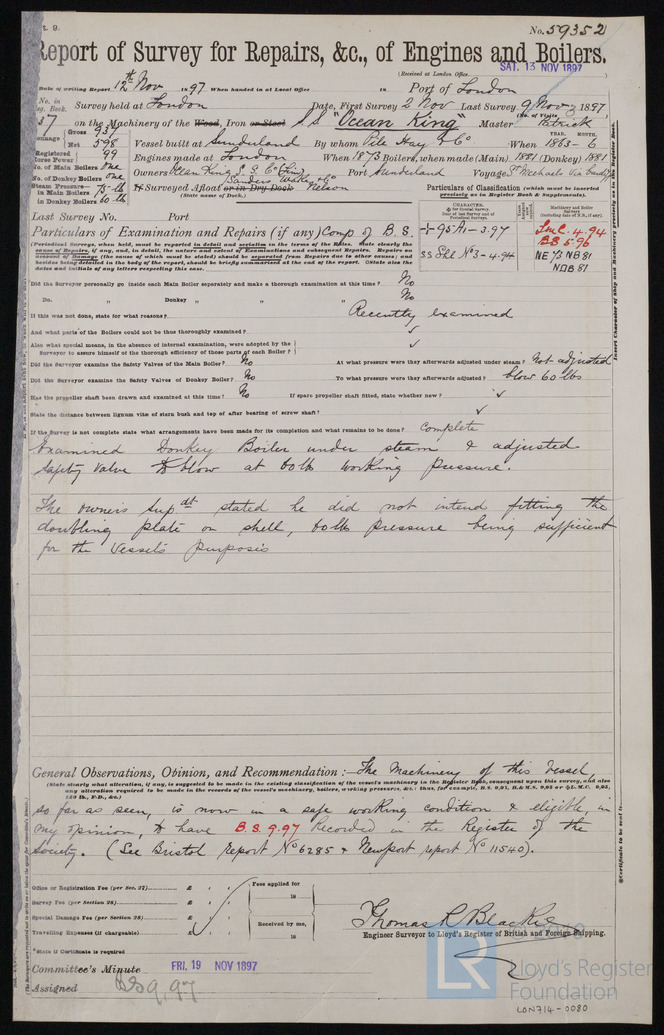 No. 59352
Report of Survey for Repairs, &c., of Engines and Boilers.
(Received at London Office
SAT. 13 NOV 1897
Date of writing Report 12th Nov 1897 When handed in at Local Office
Port of London
No. in Reg. Book.
37
Survey held at London Date, First Survey 2 Nov Last Survey 9 Nov 1897
(No. of Visits
on the Machinery of the Wood, Iron or Steel S.S. "Ocean King" Master Patrick
Tonnage Gross 937
Net 598
Vessel built at Sunderland By whom Pile Hay & Co When 1863-6
YEAR. MONTH.
Registered Horse Power 99
Engines made at London When 1873 Boilers, when made (Main) 1881 (Donkey) 1881
No. of Main Boilers One
No. of Donkey Boilers one
Owners Ocean King S.S. Co Port Sunderland Voyage St Michaels
Steam Pressure in Main Boilers 75 lb
in Donkey Boilers 60 lb
If Surveyed Afloat or in Dry Dock Nelson
(State name of Dock.)
Particulars of Classification (which must be inserted precisely as in Register Book & Supplements).
Last Survey No. Port
CHARACTER.
Machinery and Boiler Surveys
Particulars of Examination and Repairs (if any) Comp of B.S.
95 A1 - 3.97
S.S Shl No 3 - 4.94
LMC. 4.94
BS 5.96
NE 73 NB 81
NDB 81
(Periodical Surveys, when held, must be reported in detail and seriatim in the terms of the Rules. State clearly the cause of Repairs, if any, and, in detail, the nature and extent of Examinations and subsequent Repairs. Repairs on account of Damage (the cause of which must be stated) should be separated from Repairs due to other causes; and besides being detailed in the body of the report, should be briefly summarized at the end of the report. State also the dates and initials of any letters respecting this case.
Did the Surveyor personally go inside each Main Boiler separately and make a thorough examination at this time? No
Do. " Donkey " " " No
If this was not done, state for what reasons? Recently examined
And what parts of the Boilers could not be thus thoroughly examined? ✓
Also what special means, in the absence of internal examination, were adopted by the Surveyor to assure himself of the thorough efficiency of those parts of each Boiler? ✓
Did the Surveyor examine the Safety Valves of the Main Boiler? No At what pressure were they afterwards adjusted under steam? Not adjusted
Did the Surveyor examine the Safety Valves of Donkey Boiler? No To what pressure were they afterwards adjusted? blow 60 lbs
Has the propeller shaft been drawn and examined at this time? No If spare propeller shaft fitted, state whether new? ✓
State the distance between lignum vitæ of stern bush and top of after bearing of screw shaft? ✓
If the Survey is not complete state what arrangements have been made for its completion and what remains to be done? Complete
Examined Donkey Boiler under steam & adjusted
safety valve to blow at 60 lb working pressure.
The owners Supdt stated he did not intend fitting the
doubling plate on shell, 60 lb pressure being sufficient
for the vessels purposes
General Observations, Opinion, and Recommendation:- The Machinery of this Vessel
(State clearly what alteration, if any, is suggested to be made in the existing classification of the vessel's machinery in the Register Book, consequent upon this survey, and also any alteration required to be made in the records of the vessel's machinery, boilers, working pressures, &c.: thus, for example,
so far as seen, is now in a safe working condition & eligible, in
my opinion, to have B.S. 9.97 Recorded in the Register of the
society. (See Bristol report No 6285 & Newport report No 11540).
Office or Registration Fee (per Sec. 27) £ : :
Survey Fee (per Section 28) £ : :
Special Damage Fee (per Section 28) £ : :
Travelling Expenses (if chargeable) £ : :
Fees applied for
18
Received by me,
18
*State if Certificate is required
Thomas R Blackie
Engineer Surveyor to Lloyd's Register of British and Foreign Shipping.
Committee's Minute FRI. 19 NOV 1897
Assigned BS 9.97
LR
Lloyd's Register
Foundation
LON714-0080